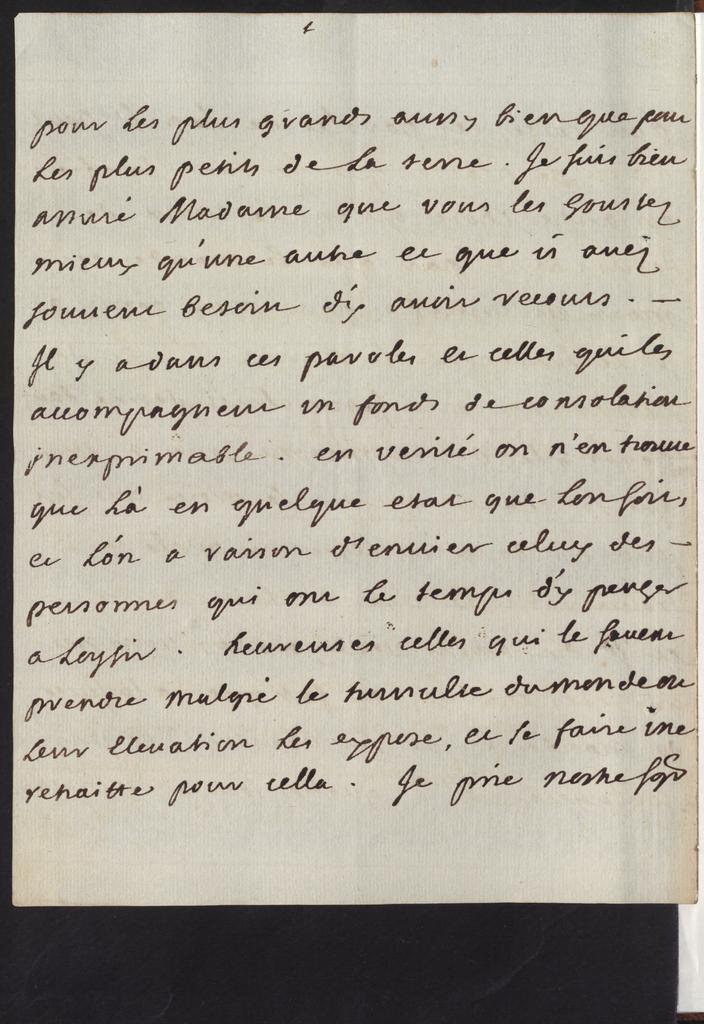 pour les plus grands aussy bien que pour
les plus petits de la terre. Je suis bien
assuré Madame que vous les goustez
mieux qu'une autre et que v͞s avez
souvent besoin d'y avoir recours. —
Il y a dans ces paroles et celles qui les
accompagnent un fonds de consolation
inexprimable. en verité on n'en trouve
que là en quelque estat que l'on soit,
et l'ón a raison d'envier celuy des —
personnes qui ont le temps d'y penser
a loysir. heureuses celles qui le savent
prendre malgré le tumulte du monde ou
leur elevation les expose, et se faire une
retraitte pour cella. Je prie nostre sgr